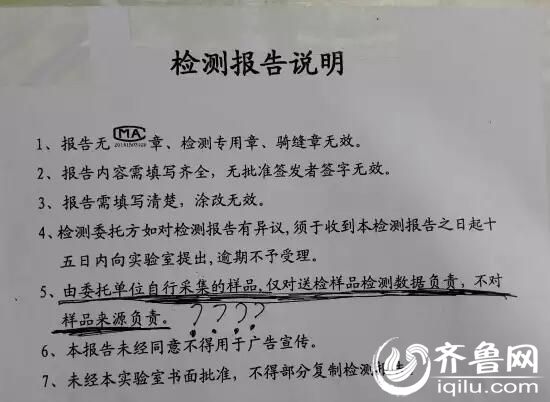 检测报告说明
1、报告无 MA 章、检测专用章、骑缝章无效。
2、报告内容需填写齐全，无批准签发者签字无效。
3、报告需填写清楚，涂改无效。
4、检测委托方如对检测报告有异议，须于收到本检测报告之日起十
五日内向实验室提出，逾期不予受理。
5、由委托单位自行采集的样品，仅对送检样品检测数据负责，不对
样品来源负责。？？？？
6、本报告未经同意不得用于广告宣传。
7、未经本实验室书面批准，不得部分复制检测
齐鲁网
iqilu.com